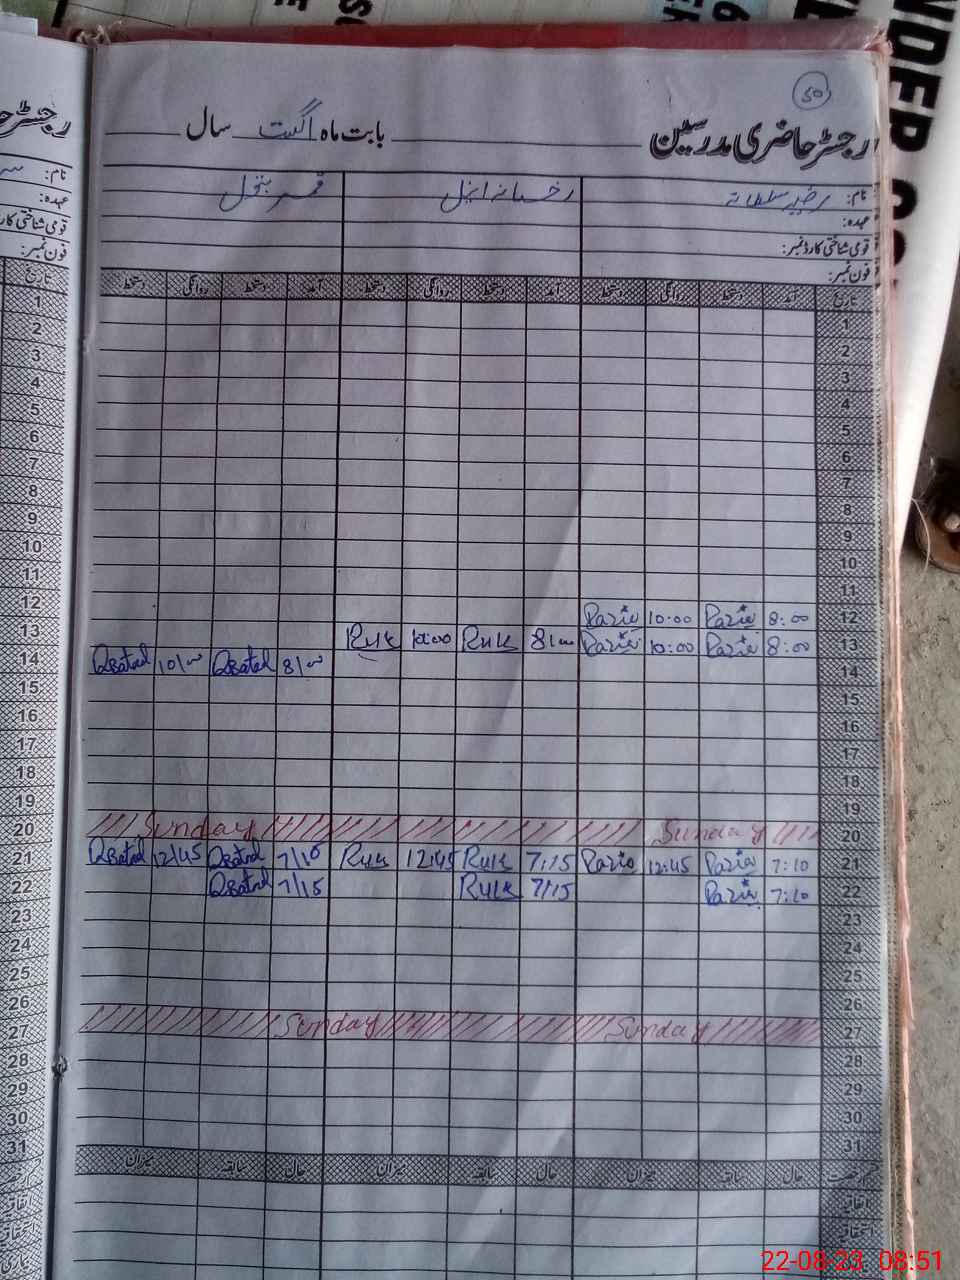 50
رجسٹر حاضری مدرسین
بابت ماہ اگست سال
نام: رضیہ سلطانہ رخسانہ انجل قمر بتول
عہدہ:
قومی شناختی کارڈ نمبر:
فون نمبر:
تاریخ آمد دستخط روانگی دستخط آمد دستخط روانگی دستخط آمد دستخط روانگی دستخط
1
2
3
4
5
6
7
8
9
10
11
12 8:00 Razia 10:00 Razia
13 8:00 Razia 10:00 Razia 8/00 Ruk 10:00 Ruk
14 8/00 Qbatool 10/00 Qbatool
15
16
17
18
19
20 Sunday Sunday
21 7:10 Razia 12:45 Razia 7:15 Ruk 12:45 Ruk 7/10 Qbatool 12/45 Qbatool
22 7:10 Razia 7/15 Ruk 7/15 Qbatool
23
24
25
26
27 Sunday Sunday
28
29
30
31
رخصت حال سابقہ میزان حال سابقہ میزان حال سابقہ میزان
اتفاقیہ
استحقاقی
22-08-23 08:51